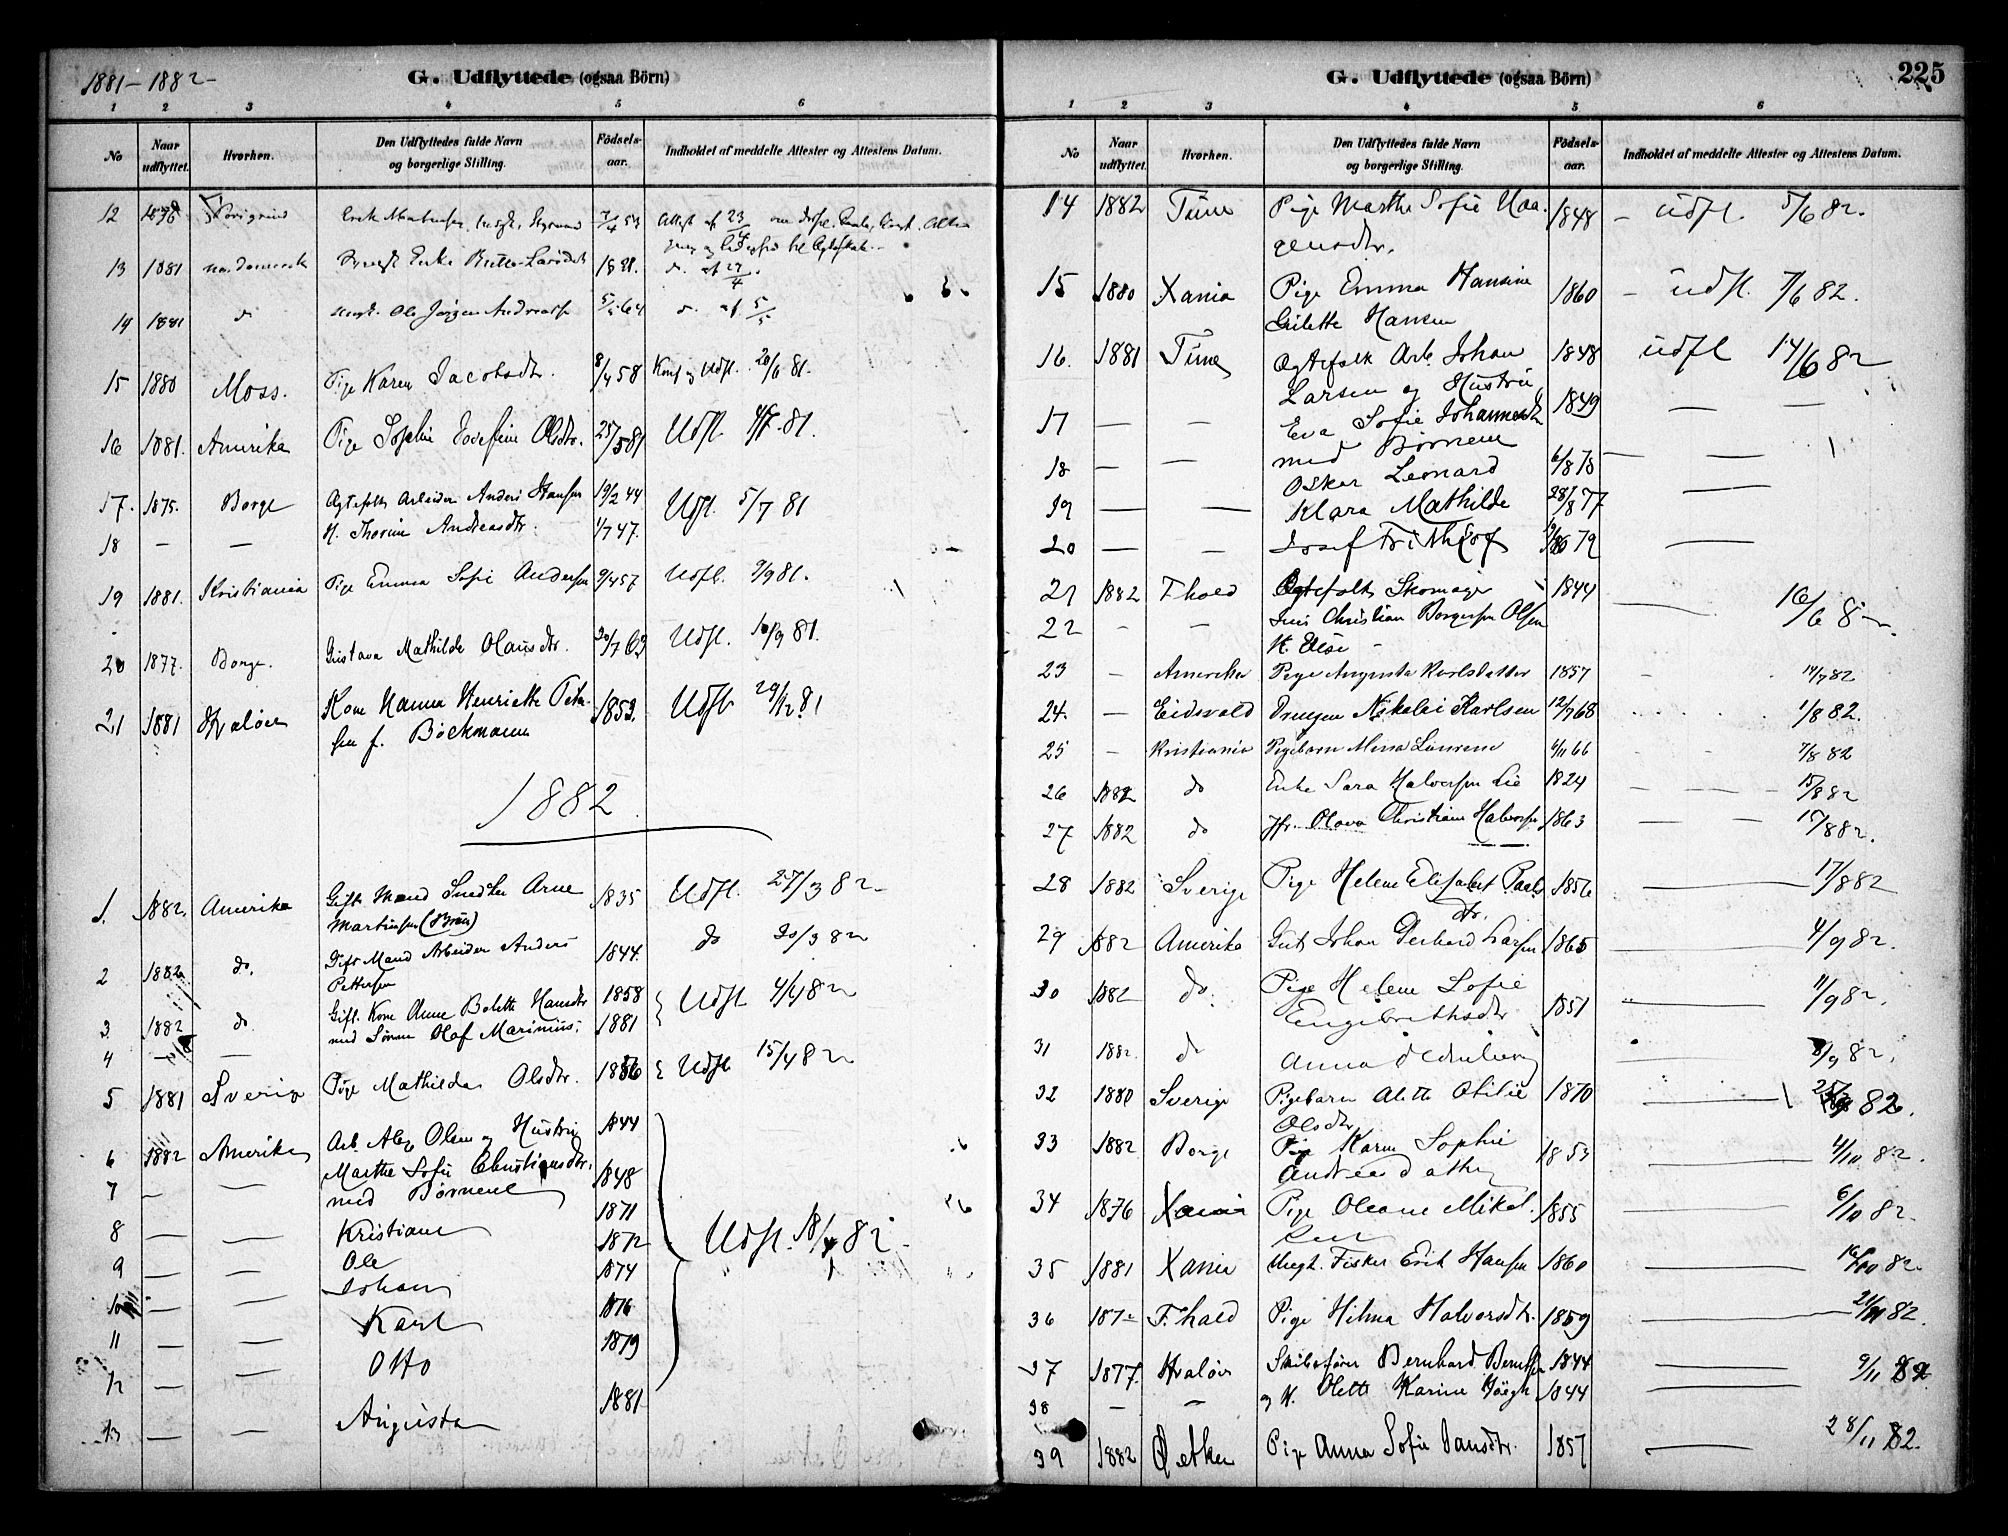 1881-1882-
G. Udflyttede (ogsaa Börn)
1 2 3 4 5 6
No
Naar udflyttet.
Hvorhen.
Den Udflyttedes fulde Navn og borgerlige Stilling.
Födsels-aar.
Indholdet af meddelte Attester og Attestens Datum.
12
13 1881
14 1881 do Ungk. Ole Jörgen Andreass 5/5 64 do af 5/5
15 1880 Moss. Pige Karen Jacobsdtr. 8/4 58 Konf og Udfl. 20/6 81.
16 1881. Amerika Pige Sophie Josefine Olsdtr. 25/5 81 Udfl 81.
17. 1875. Borge Ægtefolk Arbeider Anders Hansen 19/2 44 Udfl. 5/7 81
18 — — H. Thorine Andreasdtr. 1/7 47.
19 1881. Kristiania Pige Emma Sofie Andersen 9/4 57 Udfl. 9/9 81.
20 1877. Borge. Gustava Mathilde Olausdtr. 20/7 63 Udfl. 10/9 81.
21 1881 Hvaløer Kone Hanna Henriette Peter-
sen f. Böckmann 1853. Udfl 29/12 81
1882
1. 1882. Amerika Gift Mand Snedker Arne 1835 Udfl. 27/3 82
Martinsen (Brun)
2 1882 do. Gift Mand Arbeider Anders 1844. do 30/3 82
Pettersen
3 1882 do Gift. Kone Anne Bolette Hansdtr 1858 Udfl 4/4 82
4 — — med Sønnen Olaf Marinius. 1881
5 1881 Sverig Pige Mathilda Olsdtr. 1856 Udfl 15/4 82
6 1882 Amerika Arb. Alex Olsen og Hustru 1844
7 — — Marthe Sofie Christiansdtr. 1848
med Børnene
8 — — Kristiane 1871
9 — — Ole 1872 Udfl. 18/ 82
10 — — Johan 1874
11 — — Karl 1876
12 — — Otto 1879
13 — — Augusta 1881
G. Udflyttede (ogsaa Börn)
225
1 2 3 4 5 6
No
Naar udflyttet.
Hvorhen.
Den Udflyttedes fulde Navn og borgerlige Stilling.
Födsels-aar.
Indholdet af meddelte Attester og Attestens Datum.
14 1882 Tune Pige Marthe Sofie Haa- 1848 — udfl. 5/6 82.
gensdtr.
15 1880 Xania Pige Emma Hansine 1860 — udfl. 7/6 82.
Hansen
16. 1881 Tune Ægtefolk Arb. Johan 1848 udfl 14/6 82
Larsen og Hustru
17 — — Eva Sofie Johannesdtr 1849 — —
med Børnene
18 — — Oskar Leonard 6/8 75 — —
19 — — Klara Mathilde 28/8 77 —
20 — — Josef Frithjof 79 —
21 1882 F hald Ægtefolk Skomager 1844 — 16/6 82.
22 - - Christian Borgersen Olsen
H. Else —
23 - Amerika Pige Augusta Karlsdatter 1857 - 14/7 82
24. — Eidsvold Drengen Nikolai Karlsen 12/7 68 1/8 82.
25 - Kristiania Pigebarn Mina Laurene 6/11 66 - - 7/8 82
26 1882 do Enke Sara Halvorsen Lie 1824 — — — 15/8 82
27 1882 do Jfr. Olava Christiane Halvorsen 1863 — — 15/8 82.
28 1882 Sverige Pige Helene Elisabet Pauls 1856 — 17/8 82
dtr.
29 1882 Amerika Gut Johan Gerhard Larsen 1865 — 4/9 82.
30 1882 do. Pige Helene Sofie
Engebrethsdtr 1851 — 11/9 82.
31 1882. do Anna — 8/9 82.
32 1880 Sverige Pigebarn Alette Otilie 1870 — 82.
Olsdtr
33 1882 Borge Pige Karen Sophie 1853 — 4/10 82.
Andreasdatter
34 1876 Xania Pige Oleane Mikel- 1855 — 6/10 82.
sen
35 1881 Xania Ungk. Fisker Erik Hansen 1860 — 16/10 82.
36 F.hald Pige Hilma Halvorsdtr. 1859 — 21/11 82.
37 1877. Hvaløer Skibsfører Bernhard Berntsen 1844 — 9/11 82
38 — — og H. Olette Karine Høegh 1844 —
39 1882 Pige Anna Sofie Jansdtr. 1857 — 28/11 82.